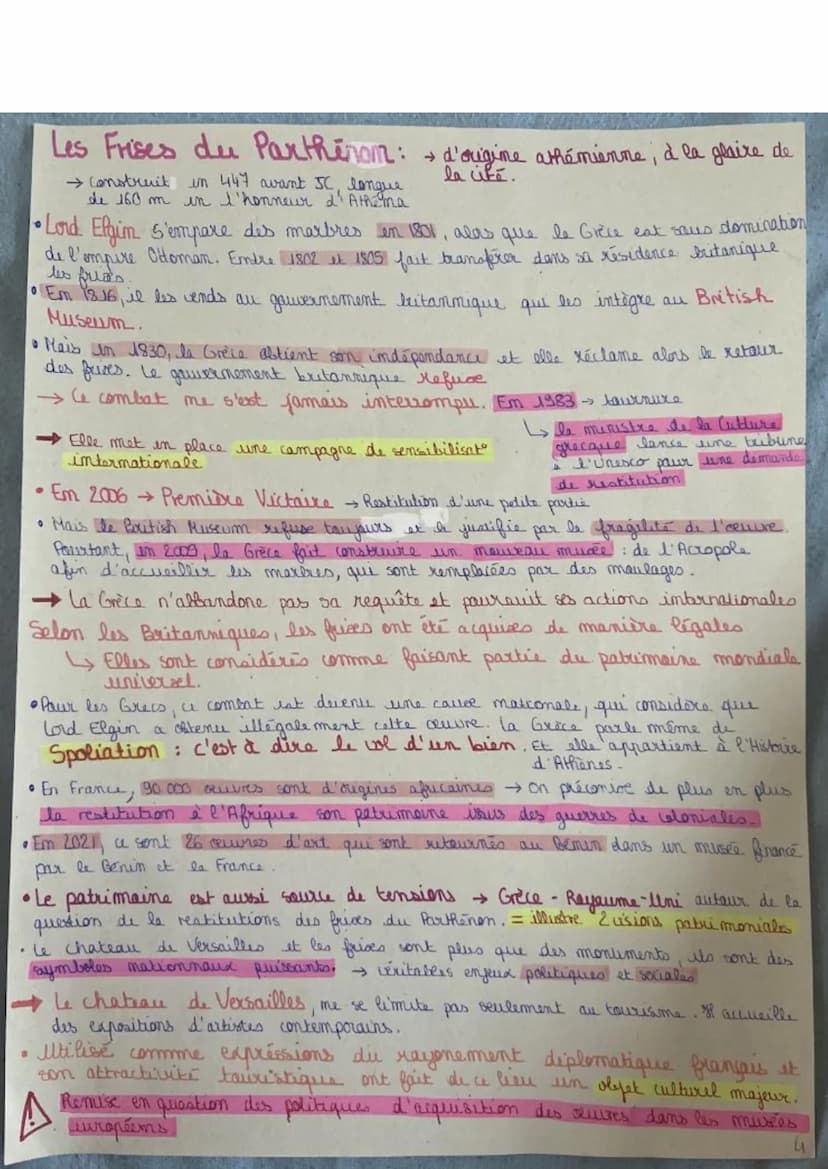 Les Frises du Parthénom : → d'origine athémienne, à la gloire de
la cité.
→ Construit en 447 avant JC, longue
de 160 m en l'honneur d'Athéma
• Lord Elgin s'empare des marbres en 1801, alors que la Grèce est sous domination
de l'empire Ottoman. Emtre 1802 et 1805 fait transférer dans sa résidence britanique
les frises.
• Em 1816, il les vends au gouvernement britannique qui les intègre au British
Museum.
• Mais en 1830, la Grèce obtient son imdépendance et elle réclame alors le retour
des frises. Le gouvernement britannique refuse
→ Ce combat me s'est jamais interrompu. Em 1983 → tournure
↳ la ministre de la Culture
grecque lance une tribune
à l'Unesco pour une demande
de restitution
→ Elle met en place une campagne de sensibilisat°
imternationale
• Em 2006 → Première Victoire → Restitution d'une petite partie
• Mais le British Museum refuse toujours et le justifie par la fragilité de l'œuvre.
Pourtant, en 2009, la Grèce fait construire un mouveau musée : de l'Acropole
afin d'accueillir les marbres, qui sont remplacées par des moulages.
→ La Grèce n'abbandone pas sa requête et poursuit ses actions imternationales
Selon les Britanniques, les frises ont été acquises de manière légales
↳ Elles sont considérés comme faisant partie du patrimoine mondiale
universel.
• Pour les Grecs, ce combat est devenu une cause mationale, qui considère que
Lord Elgin a obtenu illégalement cette œuvre. La Grèce parle même de
Spoliation : c'est à dire le vol d'un bien. Et elle appartient à l'Histoire
d'Athènes.
• En France, 90 000 œuvres sont d'origines africaines → On préconise de plus en plus
la restitution à l'Afrique son patrimoine issus des guerres de coloniales.
• Em 2021, ce sont 26 œuvres d'art qui sont retournés au Bénin dans un musée financé
par le Bénin et la France.
• Le patrimoine est aussi source de tensions → Grèce - Royaume-Uni autour de la
question de la restitutions des frises du Parthénon. = illustre 2 visions patrimoniales
• Le chateau de Versailles et les frises sont plus que des monuments, ils sont des
symboles nationnaux puissants. → véritables enjeux politiques et sociales
→ Le chateau de Versailles, me se limite pas seulement au tourisme. Il accueille
des expositions d'artistes contemporains.
• Utilisé commme expressions du rayonement diplomatique français et
son attractivité touristique ont fait de ce lieu un objet culturel majeur.
⚠ Remise en question des politiques d'acquisition des œuvres dans les musées
européems
4